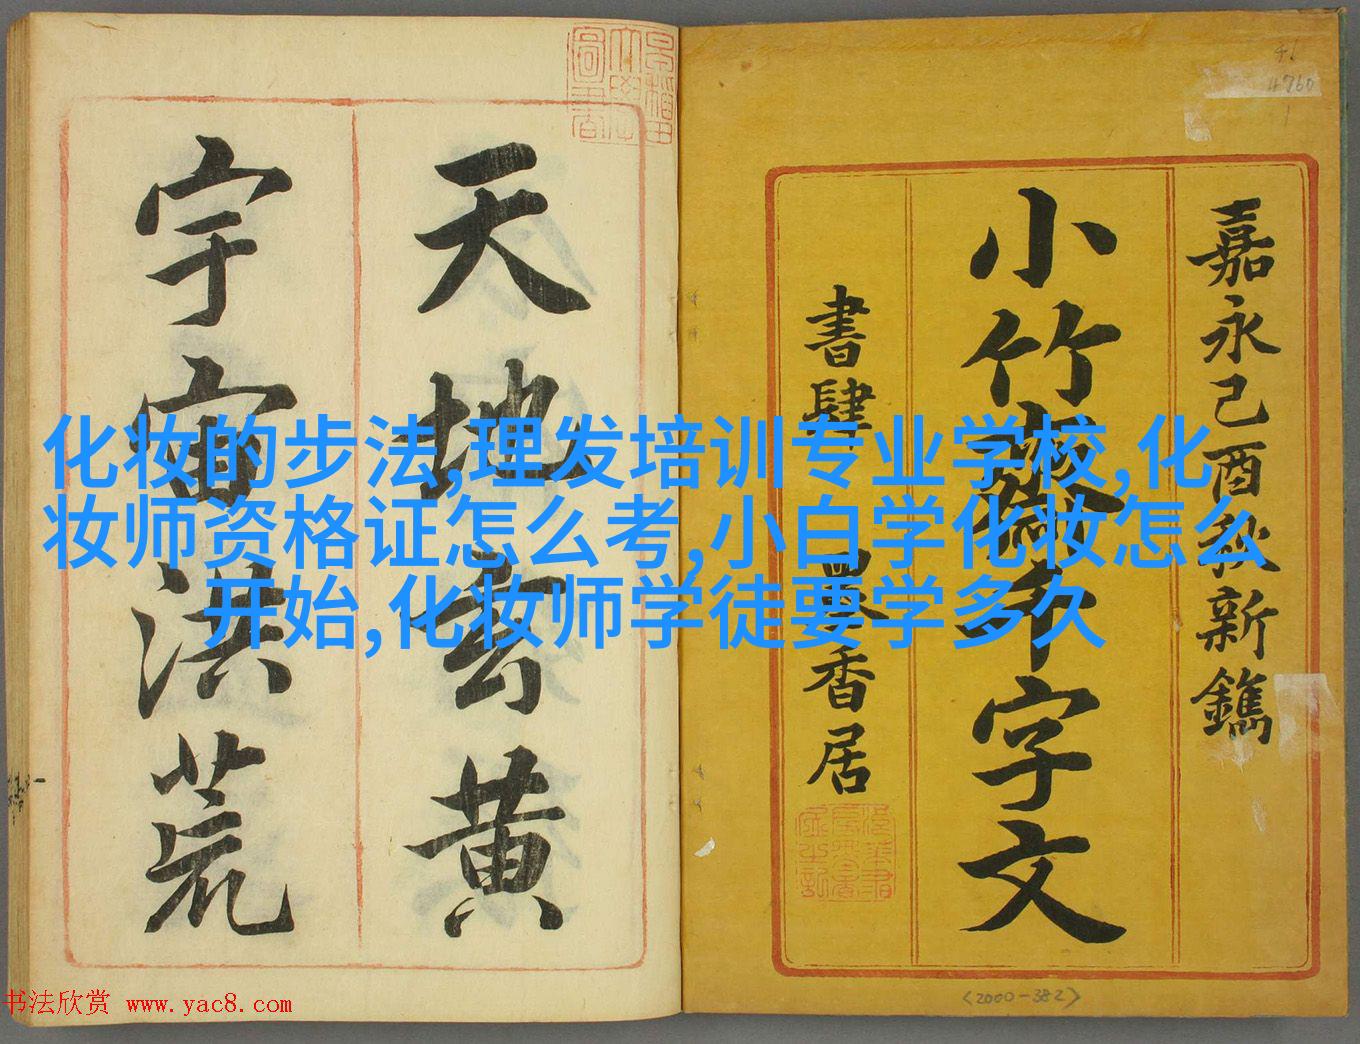 嘉永己酉秋新鐫
小竹千字文
書肆 香居
天地玄黄
宇宙洪荒
化妆的步法,理发培训专业学校,化
妆师资格证怎么考,小白学化妆怎么
开始,化妆师学徒要学多久
4760
<2000-382>
书法欣赏 www.yac8.com